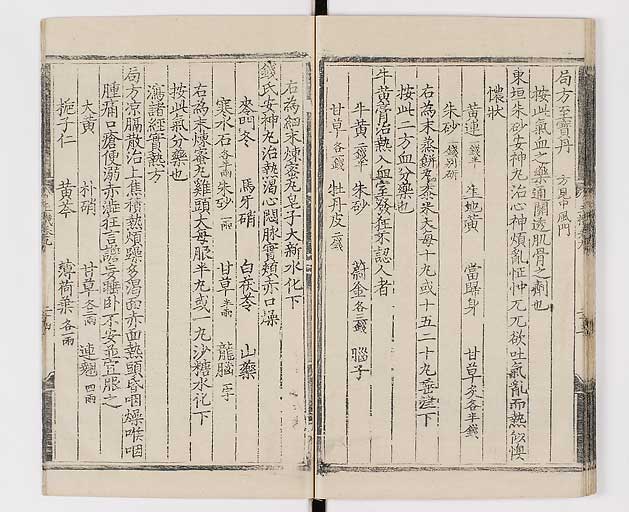 局方至寶丹 方見中風門
按此氣血之藥通關透肌骨之劑也
東垣朱砂安神丸治心神煩亂怔忡兀兀欲吐氣亂而熱似懊
憹狀
黃連 生地黃 當歸身 甘草炙各半錢
朱砂
右為末蒸餅丸黍米大每十丸或十五二十丸 下
按此二方血分藥也
牛黃膏治熱入血室發狂不認人者
牛黃 朱砂 欝金各三錢 腦子
甘草各一錢 牡丹皮二錢
右為細末煉蜜丸皂子大新水化下
錢氏安神丸治熱渴心悶脉實頰赤口燥
麥門冬 馬牙硝 白茯苓 山藥
寒水石各半兩 朱砂一兩 甘草半兩 龍腦一字
右為末煉蜜丸雞頭大每服半丸或一丸沙糖水化下
按此氣分藥也
瀉諸經實熱方
局方凉膈散治上焦積熱煩躁多渴面赤面熱頭昏咽燥喉咽
腫痛口瘡便溺赤澁狂言譫妄睡卧不安並宜服之
大黃 朴硝 甘草各二兩 連翹四兩
梔子仁 黃芩 薄荷葉各一兩